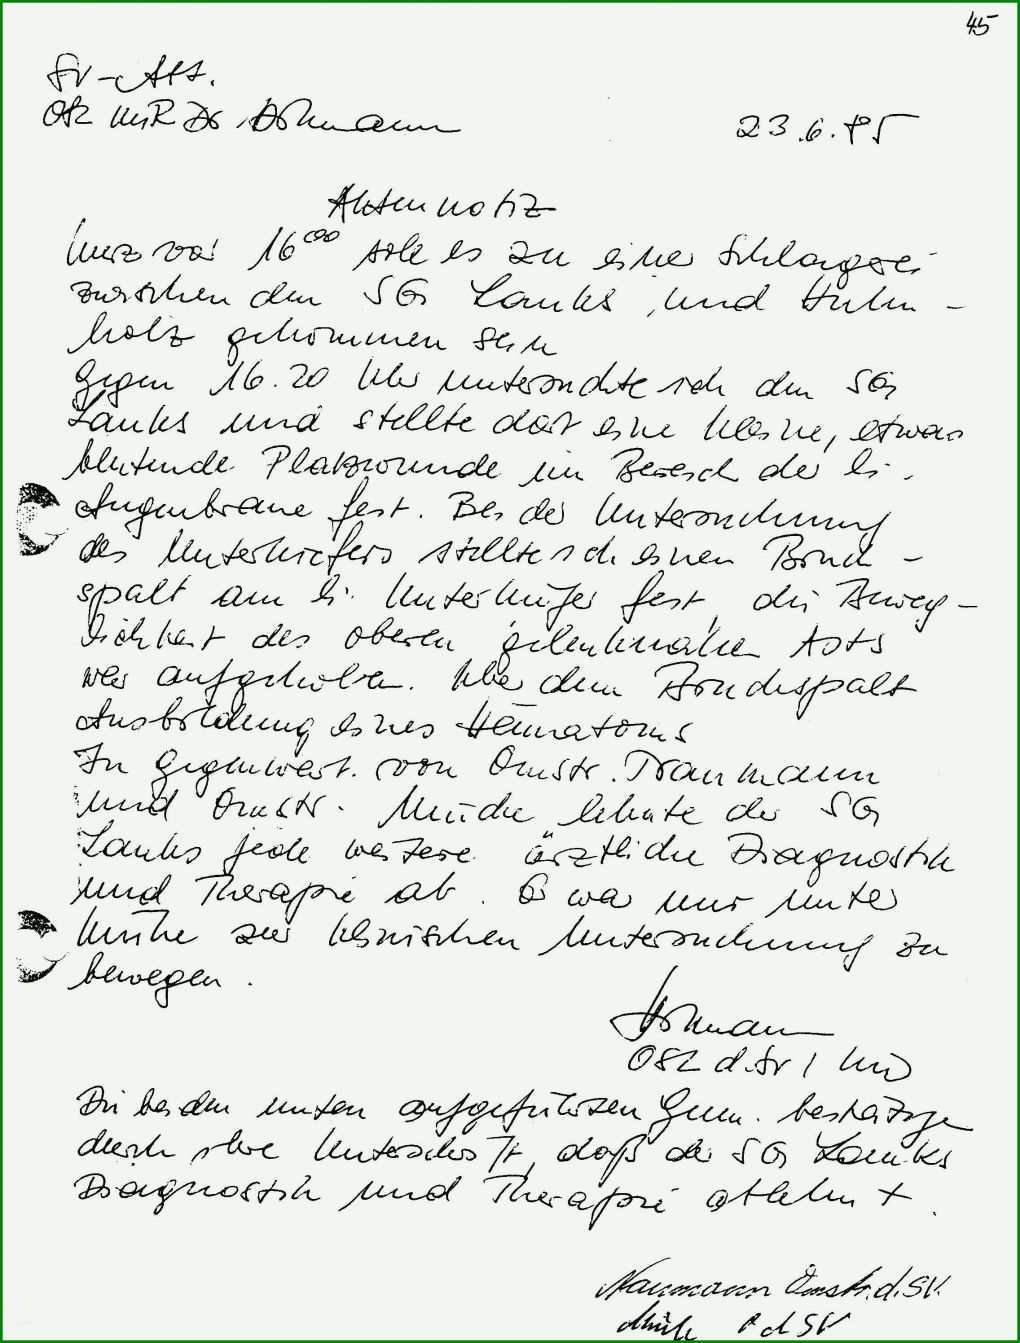 45
SV-Abt.
OSL MR Dr. Hohmann
23.6.85
Aktennotiz
Kurz vor 16⁰⁰ soll es zu einer Schlägerei
zwischen den SG Lauks und Huhn-
holz gekommen sein
Gegen 16.20 Uhr untersuchte ich den SG
Lauks und stellte dort eine kleine, etwas
blutende Platzwunde im Bereich der li.
Augenbraue fest. Bei der Untersuchung
des Unterkiefers stellte ich einen Bruch-
spalt am li. Unterkiefer fest, die Beweg-
lichkeit des oberen gelenknahen Asts
war aufgehoben. Über dem Bruchspalt
Ausbildung eines Hämatoms
In Gegenwart von Omstr. Naumann
und Omstr. Mücke lehnte der SG
Lauks jede weitere ärztliche Diagnostik
und Therapie ab. Er war nur unter
Mühe zur klinischen Untersuchung zu
bewegen.
OSL d. SV /
Die beiden unten aufgeführten Genn. bestätigen
durch ihre Unterschrift, daß der SG Lauks
Diagnostik und Therapie ablehnt.
Naumann Omstr. d. SV.
d SV